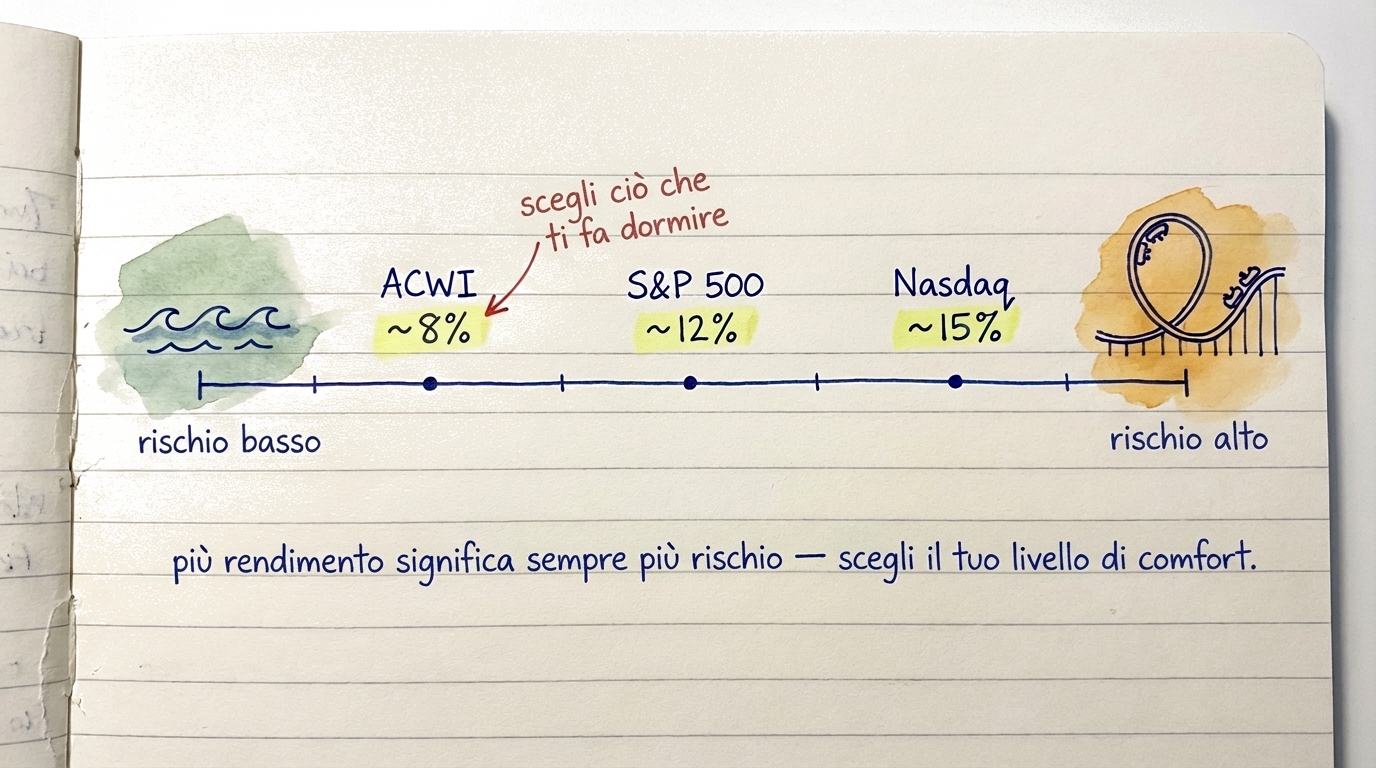 scegli ciò che
ti fa dormire
ACWI
~8%
S&P 500
~12%
Nasdaq
~15%
rischio basso
rischio alto
più rendimento significa sempre più rischio — scegli il tuo livello di comfort.